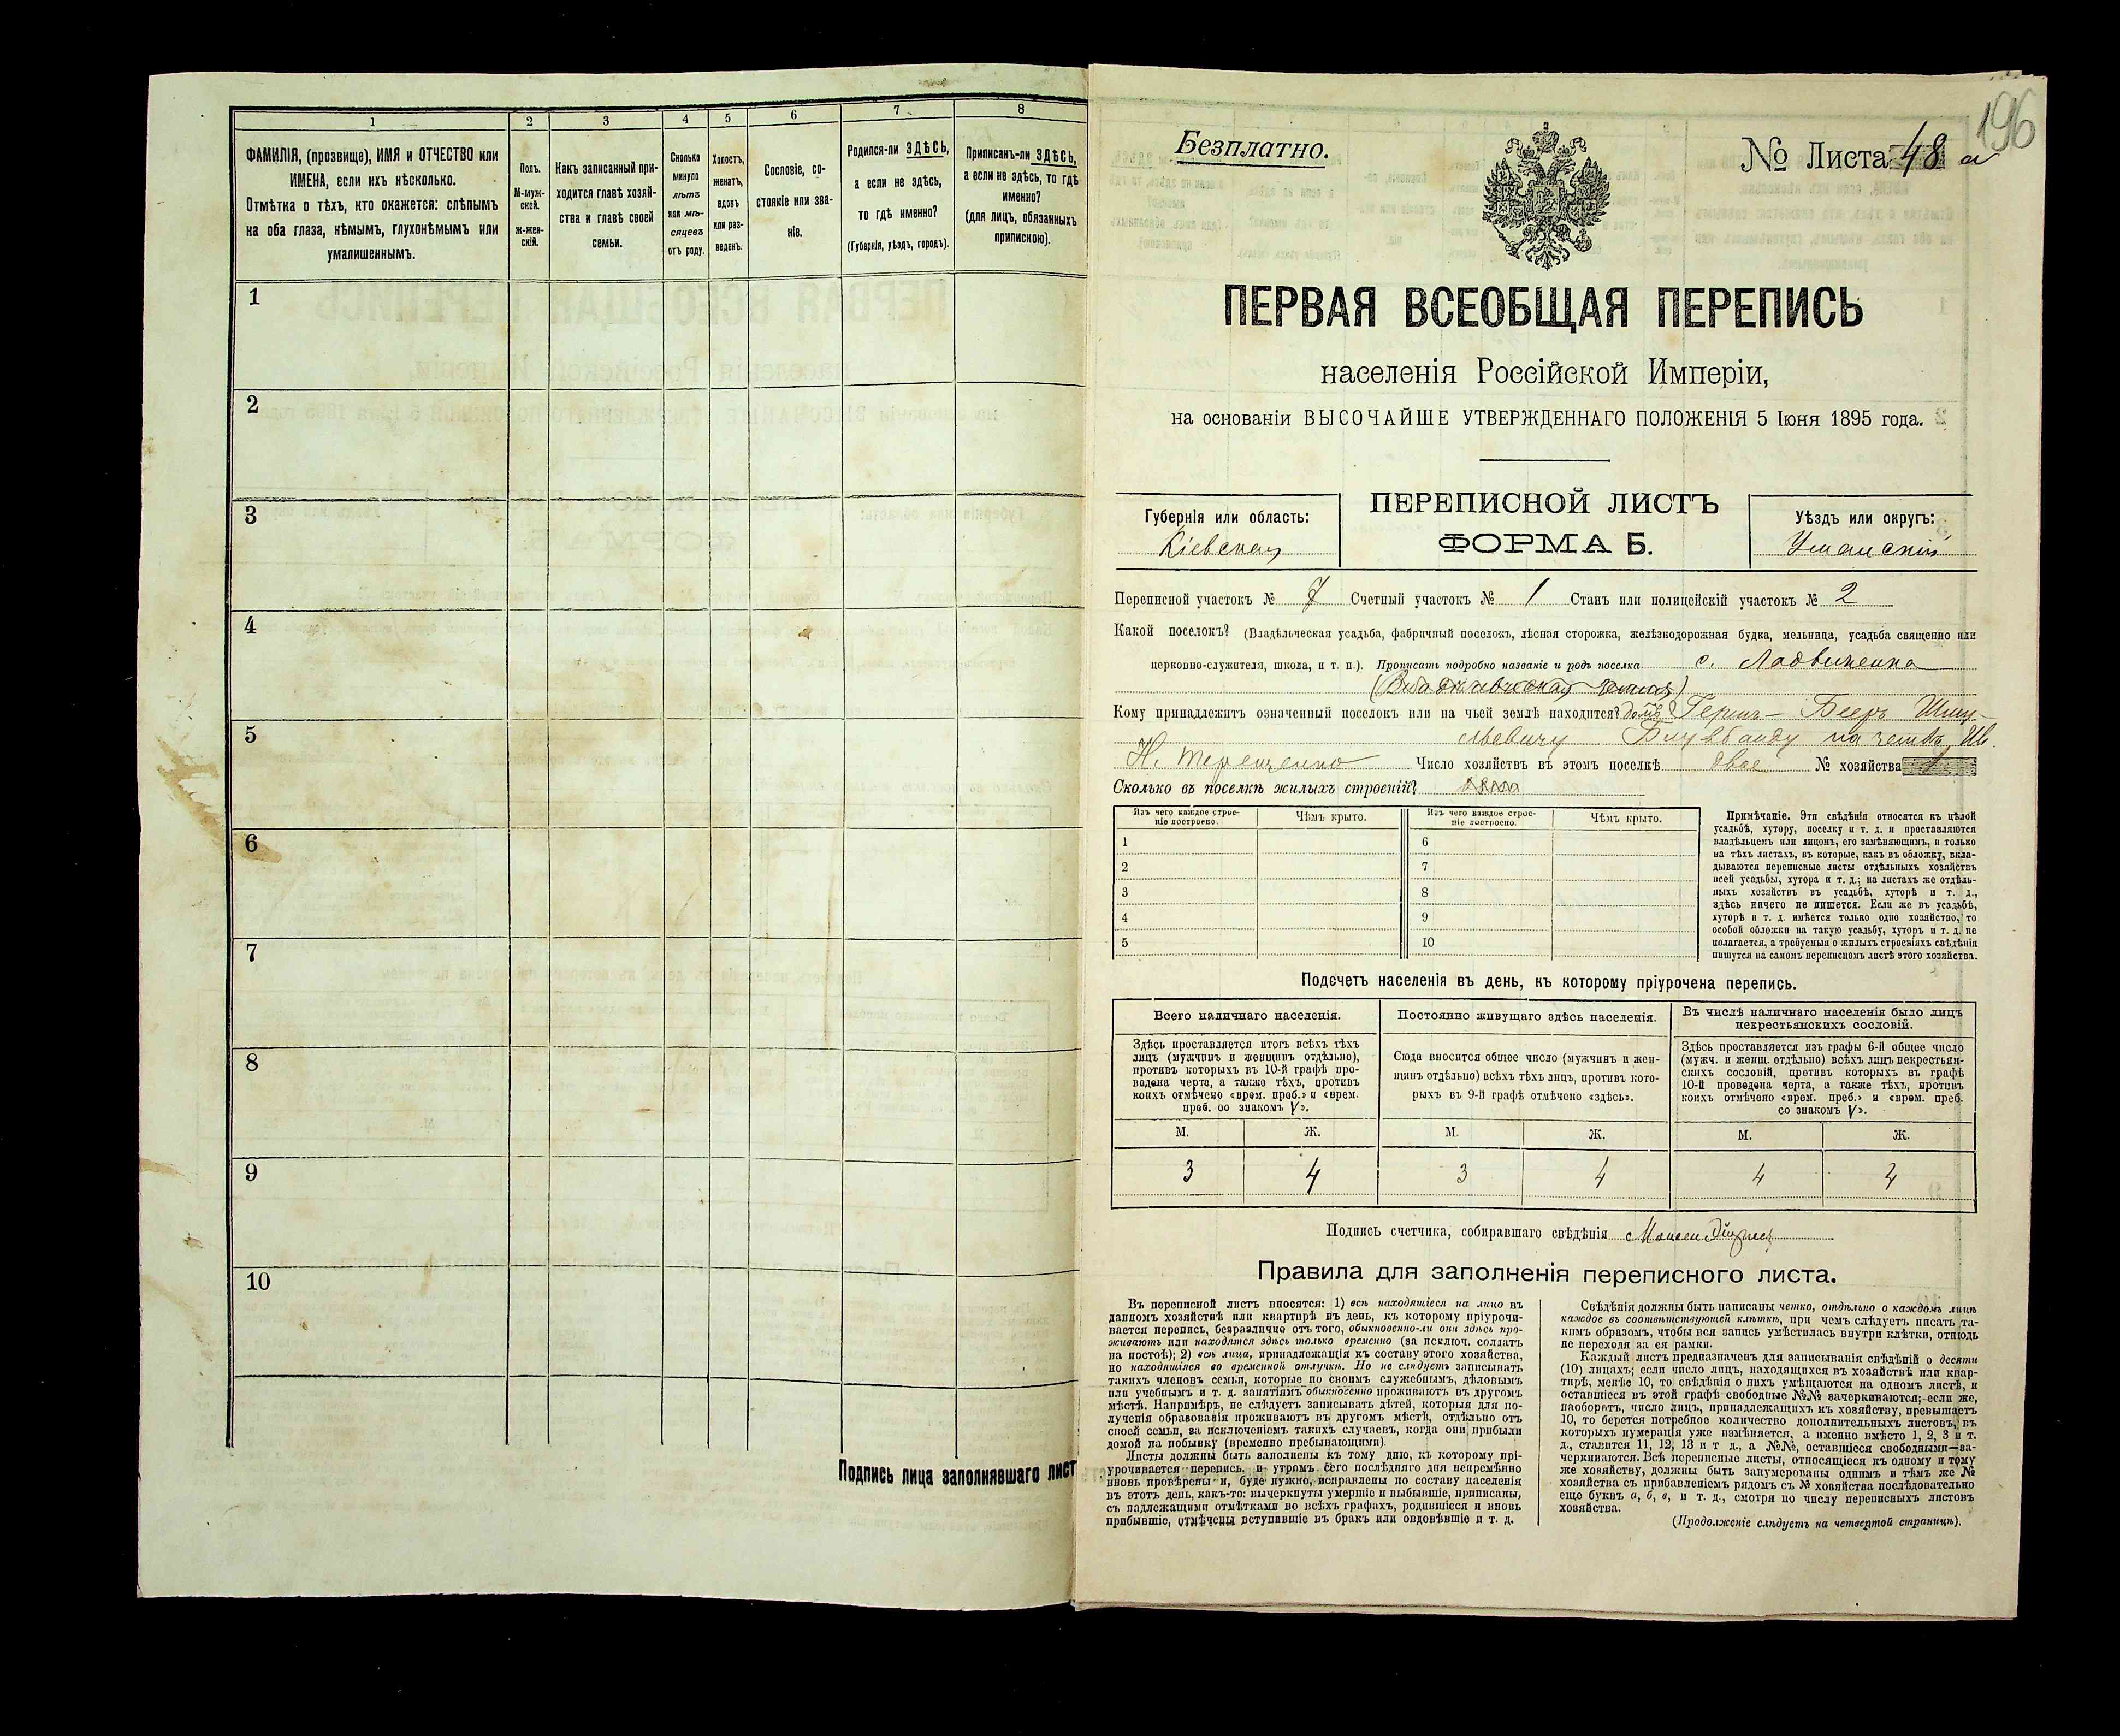 1 2 3 4 5 6 7 8
ФАМИЛІЯ, (прозвище), ИМЯ и ОТЧЕСТВО или
ИМЕНА, если ихъ нѣсколько.
Отмѣтка о тѣхъ, кто окажется: слѣпымъ
на оба глаза, нѣмымъ, глухонѣмымъ или
умалишеннымъ.
Полъ.
М-муж-
ской.
ж-жен-
скій.
Какъ записанный при-
ходится главѣ хозяй-
ства и главѣ своей
семьи.
Сколько
минуло
лѣтъ
или мѣ-
сяцевъ
отъ роду.
Холостъ,
женатъ,
вдовъ
или раз-
веденъ.
Сословіе, со-
стояніе или зва-
ніе.
Родился-ли ЗДѢСЬ,
а если не здѣсь,
то гдѣ именно?
(Губернія, уѣздъ, городъ).
Приписанъ-ли ЗДѢСЬ,
а если не здѣсь, то гдѣ
именно?
(для лицъ, обязанныхъ
припискою).
1
2
3
4
5
6
7
8
9
10
Подпись лица заполнявшаго лист
196
Безплатно.
№ Листа 48 а
ПЕРВАЯ ВСЕОБЩАЯ ПЕРЕПИСЬ
населенія Россійской Имперіи,
на основаніи ВЫСОЧАЙШЕ УТВЕРЖДЕННАГО ПОЛОЖЕНІЯ 5 Іюня 1895 года.
ПЕРЕПИСНОЙ ЛИСТЪ
ФОРМА Б.
Губернія или область:
Кіевская
Уѣздъ или округъ:
Уманскій
Переписной участокъ № 7 Счетный участокъ № 1 Станъ или полицейскій участокъ № 2
Какой поселокъ? (Владѣльческая усадьба, фабричный поселокъ, лѣсная сторожка, желѣзнодорожная будка, мельница, усадьба священно или
церковно-служителя, школа, и т. п.). Прописать подробно названіе и родъ поселка с. Ладыженка
Кому принадлежитъ означенный поселокъ или на чьей землѣ находится? домъ Герш- Бееръ Шму-
льевичу на землѣ Ив.
Н. Терещенко Число хозяйствъ въ этомъ поселкѣ двое № хозяйства 1
Сколько въ поселкѣ жилыхъ строеній?
Изъ чего каждое строе-
ніе построено.
Чѣмъ крыто.
Изъ чего каждое строе-
ніе построено.
Чѣмъ крыто.
1 6
2 7
3 8
4 9
5 10
Примѣчаніе. Эти свѣдѣнія относятся къ цѣлой
усадьбѣ, хутору, поселку и т. д. и проставляются
владѣльцемъ или лицомъ, его замѣняющимъ, и только
на тѣхъ листахъ, въ которые, какъ въ обложку, вкла-
дываются переписные листы отдѣльныхъ хозяйствъ
всей усадьбы, хутора и т. д.; на листахъ же отдѣль-
ныхъ хозяйствъ въ усадьбѣ, хуторѣ и т. д.,
здѣсь ничего не пишется. Если же въ усадьбѣ,
хуторѣ и т. д. имѣется только одно хозяйство, то
особой обложки на такую усадьбу, хуторъ и т. д. не
полагается, а требуемыя о жилыхъ строеніяхъ свѣдѣнія
пишутся на самомъ переписномъ листѣ этого хозяйства.
Подсчетъ населенія въ день, къ которому пріурочена перепись.
Всего наличнаго населенія.
Здѣсь проставляется итогъ всѣхъ тѣхъ
лицъ (мужчинъ и женщинъ отдѣльно),
противъ которыхъ въ 10-й графѣ про-
ведена черта, а также тѣхъ, противъ
коихъ отмѣчено «врем. преб.» и «врем.
преб. со знакомъ V».
Постоянно живущаго здѣсь населенія.
Сюда вносится общее число (мужчинъ и жен-
щинъ отдѣльно) всѣхъ тѣхъ лицъ, противъ кото-
рыхъ въ 9-й графѣ отмѣчено «здѣсь».
Въ числѣ наличнаго населенія было лицъ
некрестьянскихъ сословій.
Здѣсь проставляется изъ графы 6-й общее число
(мужч. и женщ. отдѣльно) всѣхъ лицъ некрестьян-
скихъ сословій, противъ которыхъ въ графѣ
10-й проведена черта, а также тѣхъ, противъ
коихъ отмѣчено «врем. преб.» и «врем. преб.
со знакомъ V».
М. Ж. М. Ж. М. Ж.
3 4 3 4 4 4
Подпись счетчика, собиравшаго свѣдѣнія
Правила для заполненія переписного листа.
Въ переписной листъ вносятся: 1) всѣ находящіеся на лицо въ
данномъ хозяйствѣ или квартирѣ въ день, къ которому пріурочи-
вается перепись, безразлично отъ того, обыкновенно-ли они здѣсь про-
живаютъ или находятся здѣсь только временно (за исключ. солдатъ
на постоѣ); 2) всѣ лица, принадлежащія къ составу этого хозяйства,
но находящіяся во временной отлучкѣ. Но не слѣдуетъ записывать
такихъ членовъ семьи, которые по своимъ служебнымъ, дѣловымъ
или учебнымъ и т. д. занятіямъ обыкновенно проживаютъ въ другомъ
мѣстѣ. Напримѣръ, не слѣдуетъ записывать дѣтей, которыя для по-
лученія образованія проживаютъ въ другомъ мѣстѣ, отдѣльно отъ
своей семьи, за исключеніемъ такихъ случаевъ, когда они прибыли
домой на побывку (временно пребывающими).
Листы должны быть заполнены къ тому дню, къ которому прі-
урочивается перепись, и утромъ сего послѣдняго дня непремѣнно
вновь провѣрены и, буде нужно, исправлены по составу населенія
въ этотъ день, какъ-то: вычеркнуты умершіе и выбывшіе, приписаны,
съ надлежащими отмѣтками во всѣхъ графахъ, родившіеся и вновь
прибывшіе, отмѣчены вступившіе въ бракъ или овдовѣвшіе и т. д.
Свѣдѣнія должны быть написаны четко, отдѣльно о каждомъ лицѣ
каждое въ соотвѣтствующей клѣткѣ, при чемъ слѣдуетъ писать та-
кимъ образомъ, чтобы вся запись умѣстилась внутри клѣтки, отнюдь
не переходя за ея рамки.
Каждый листъ предназначенъ для записыванія свѣдѣній о десяти
(10) лицахъ; если число лицъ, находящихся въ хозяйствѣ или квар-
тирѣ, менѣе 10, то свѣдѣнія о нихъ умѣщаются на одномъ листѣ, и
оставшіеся въ этой графѣ свободные №№ зачеркиваются; если же,
наоборотъ, число лицъ, принадлежащихъ къ хозяйству, превышаетъ
10, то берется потребное количество дополнительныхъ листовъ, въ
которыхъ нумерація уже измѣняется, а именно вмѣсто 1, 2, 3 и т.
д., ставится 11, 12, 13 и т д., а №№, оставшіеся свободными—за-
черкиваются. Всѣ переписные листы, относящіеся къ одному и тому
же хозяйству, должны быть занумерованы однимъ и тѣмъ же №
хозяйства съ прибавленіемъ рядомъ съ № хозяйства послѣдовательно
еще буквъ а, б, в, и т. д., смотря по числу переписныхъ листовъ
хозяйства.
(Продолженіе слѣдуетъ на четвертой страницѣ).